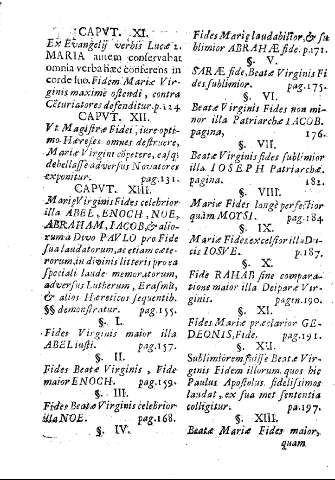 CAPVT. XI.
Ex Evangelij verbis Lucæ 2.
MARIA autem conservabat
omnia verba hæc conferens in
corde suo. Fidem Mariæ Vir-
ginis maximè ostendi, contra
Cēturiatores defenditur. p.124
CAPVT. XII.
Vt Magistræ Fidei, jure opti-
mo Hæreses omnes destruere,
Mariæ Virgini cōpetere, easq;
debellasse adversus Novatores
exponitur. pag.131.
CAPVT. XIII.
Mariæ Virginis Fides celebrior
illa ABEL, ENOCH, NOE,
ABRAHAM, IACOB, & alio-
rum a Divo PAVLO pro Fide
sua laudatorum, ac etiam cæte-
rorum, in divinis litteris prova
speciali laude memoratorum,
adversus Lutherum, Erasmũ,
& alios Hæreticos sequentib.
§§ demonstratur. pag.155.
§. I.
Fides Virginis maior illa
ABEL iusti. pag.157.
§. II.
Fides Beatæ Virginis, Fide
maior ENOCH. pag.159.
§. III.
Fides Beatæ Virginis celebrior
illa NOE. pag.168.
§. IV.
Fides Mariæ laudabilior, & su
blimior ABRAHÆ fide. p.171.
§. V.
SARÆ fide, Beatæ Virginis Fi
des sublimior. pag.175.
§. VI.
Beatæ Virginis Fides non mi-
nor illa Patriarchæ IACOB.
pagina, 176.
§. VII.
Beatæ Virginis fides sublimior
illa IOSEPH Patriarchæ.
pagina. 182.
§. VIII.
Mariæ Fides longè perfectior
quàm MOYSI. pag.184
§. IX.
Mariæ Fides excelsior illa Du-
cis IOSVE. p.187.
§. X.
Fide RAHAB sine compara-
tione maior illa Deiparæ Vir-
ginis. pagin.190.
§. XI.
Fides Mariæ præclarior GE-
DEONIS, Fide. pag.191.
§. XII.
Sublimiorem fuisse Beatæ Vir-
ginis Fidem illorum, quos hic
Paulus Apostolus fidelissimos
laudat, ex sua met sententia
colligitur. pa.197.
§. XIII.
Beatæ Mariæ Fides maior,
quam